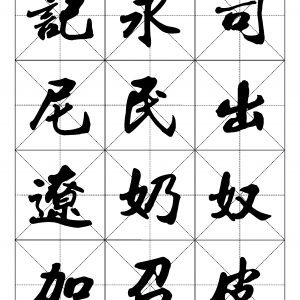 記永司
尼民出
遼奶奴
加召皮